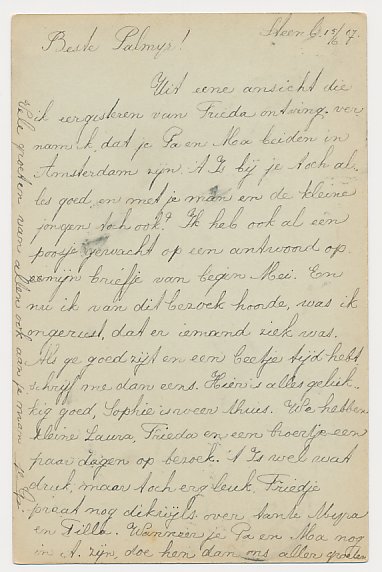 Steenb. 15/6 07.
Beste Palmyr!
Uit eene ansicht die
ik eergisteren van Frieda ontving, ver-
nam ik, dat je Pa en Moa beiden in
Amsterdam zijn. 't Is bij je toch al-
les goed, en met je man en de kleine
jongen toch ook? Ik heb ook al een
poosje gewacht op een antwoord op
mijn briefje van begin Mei. En
nu ik van dit bezoek hoorde, was ik
ongerust, dat er iemand ziek was.
Als ge goed zijt en een beetje tijd hebt
schrijf me dan eens. Hier is alles geluk-
kig goed, Sophie is weer thuis. We hebben
kleine Laura, Frieda en een broertje een
paar dagen op bezoek. 't Is wel wat
druk, maar toch erg leuk, Friedje
praat nog dikwijls over tante
en Tilla. Wanneer je Pa en Moa nog
in A. zijn, doe hen dan ons aller groeten
Vele groeten van allen ook aan je man